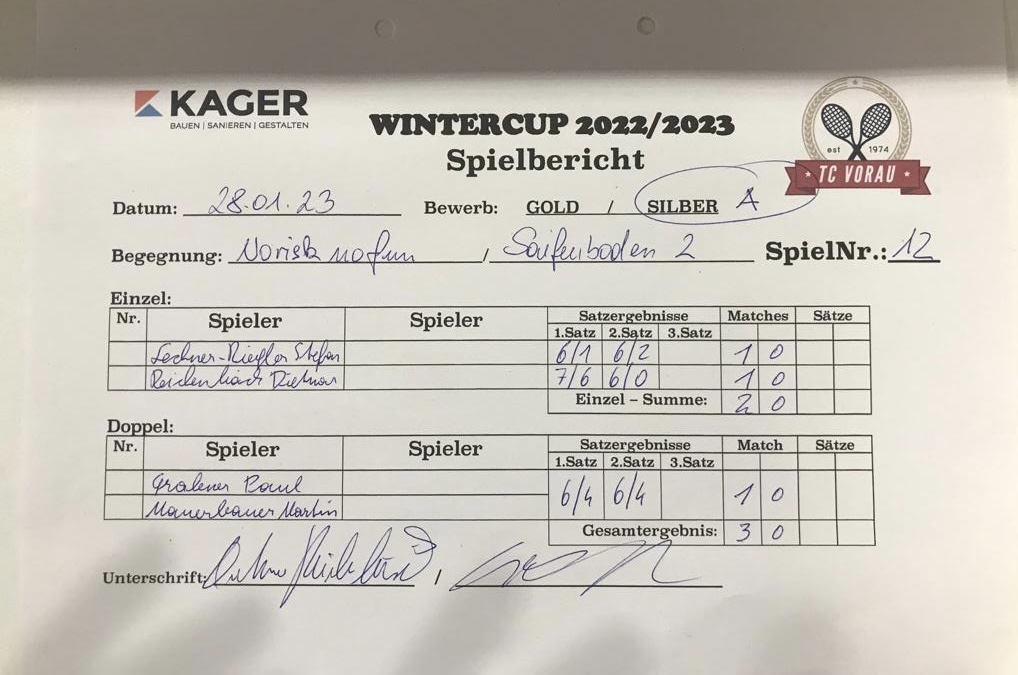 KAGER
BAUEN | SANIEREN | GESTALTEN
WINTERCUP 2022/2023
Spielbericht
est 1974
TC VORAU
Datum: 28.01.23 Bewerb: GOLD / SILBER A
Begegnung: Norisk nofun / Saifenboden 2 SpielNr.: 12
Einzel:
Nr. Spieler Spieler Satzergebnisse Matches Sätze
1.Satz 2.Satz 3.Satz
Lechner-Riegler Stefan 6/1 6/2 1 0
Reichenbach Dietmar 7/6 6/0 1 0
Einzel – Summe: 2 0
Doppel:
Nr. Spieler Spieler Satzergebnisse Match Sätze
1.Satz 2.Satz 3.Satz
Paul 6/4 6/4 1 0
Mauerbauer Martin
Gesamtergebnis: 3 0
Unterschrift: ,